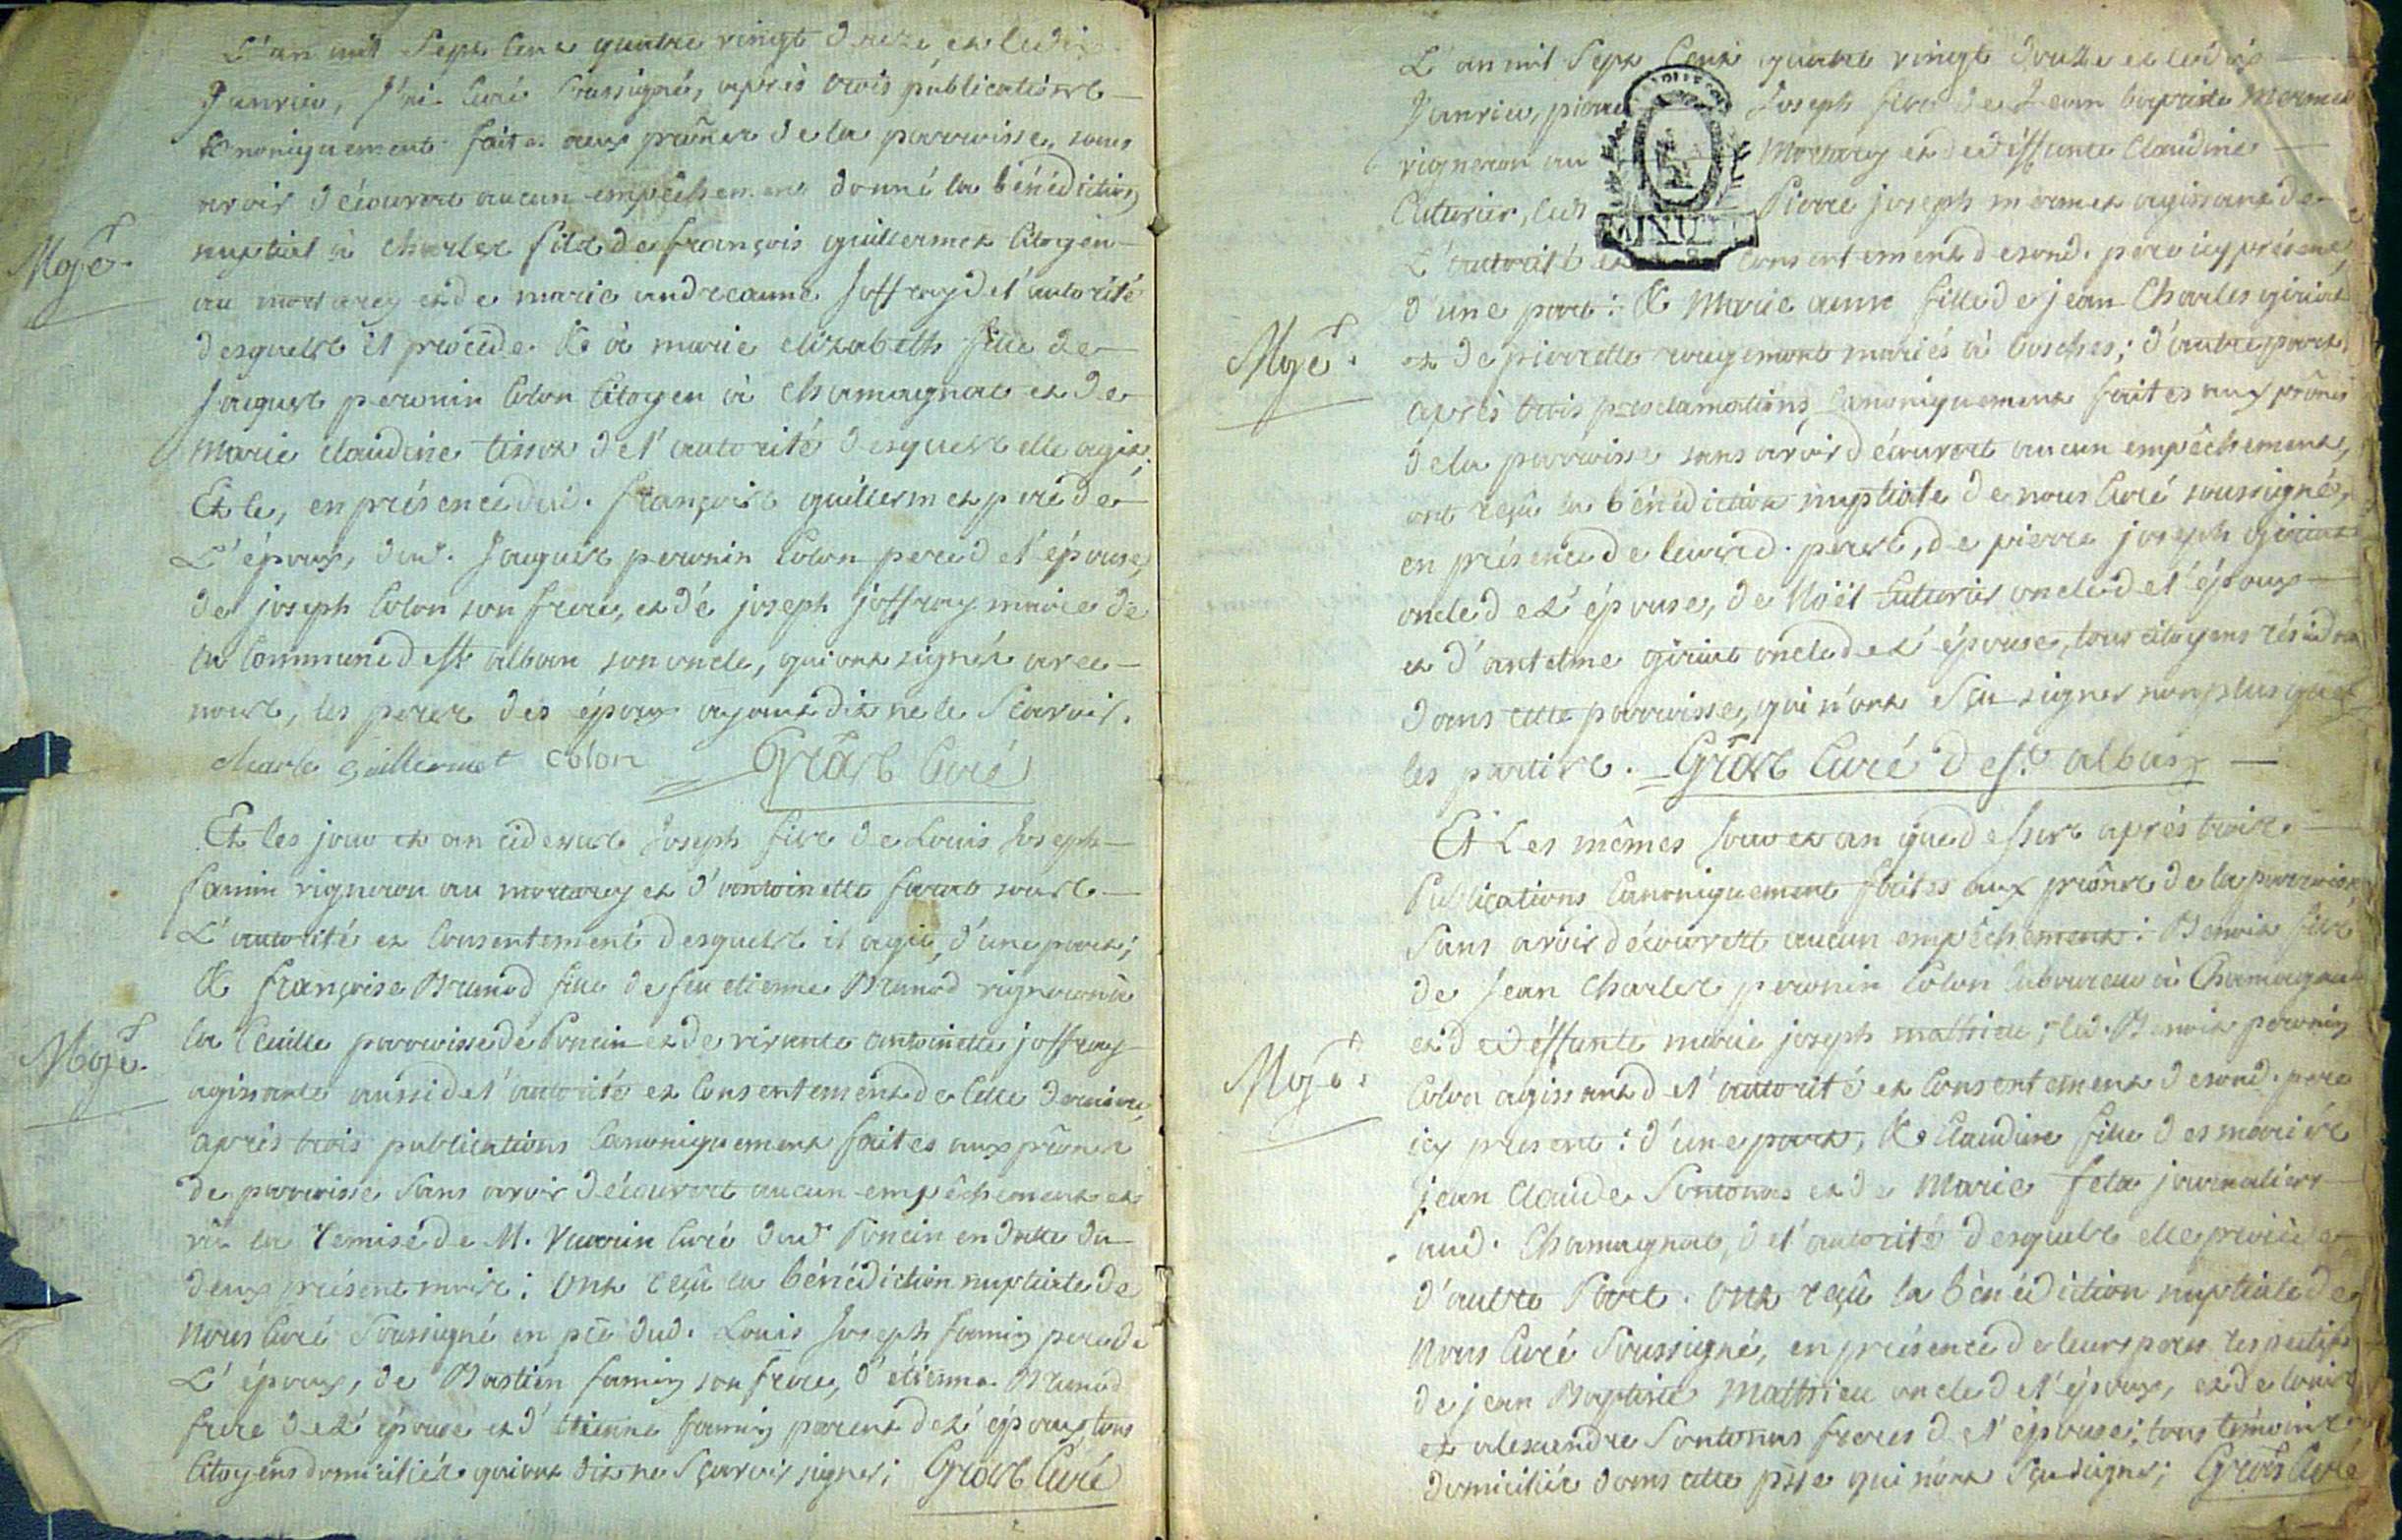 L'an mil Sept Cent quatre vingt douze et le dix
Janvier, J'ai Curé Soussigné, après trois publications
Canoniquement faites aux prônes de la parroisse, sans
avoir découvert aucun empêchement donné la bénédiction
nuptial à Charles fils de françois guillermet Citoyen
au mortarey et de marie andreanne Joffray de l'autorité
desquels il procède. & à marie elizabeth fille de
Jaques peronin Colon Citoyen à Chamagnat et de
Marie claudine tissot de l'autorité desquels elle agit;
Et le, en présence dud. françois guillermet pere de
L'époux, dud. Jaques peronin Colon pere de l'épouse,
de joseph Colon son frere, et de joseph joffray maire de
la Commune de st alban son oncle, qui ont signés avec
nous, les peres des époux ayant dit ne le Scavoir.
Charle Guillermet Colon Gros Curé
Mgē.
Et les jour et an cidessus Joseph fils de Louis Joseph
famin vigneron au mortarey et d'antoinette sous
L'autorité et Consentement desquels il agit, d'une part;
& françoise Brunod fille de feu etienne Brunod vigneron à
la Cueille parroisse de Poncin et de vivante antoinette joffray
agissante aussi de l'autorité et Consentement de cette derniere,
après trois publications Canoniquement faites aux prônes
de parroisse Sans avoir découvert aucun empêchement et
vû la remise de M. Vuarin Curé dud Poncin en datte du
deux présent mois; Ont reçû la bénédiction nuptiale de
Nous Curé Soussigné en pce dud. Louis Joseph famin pere de
L'époux, de Bastien famin son frere, d'étienne Brunod
frere de l'épouse et d'étienne famin parent de l'époux tous
Citoyens domiciliés qui ont dit ne Sçavoir signer; Gros Curé
Mgē.
L'an mil Sept Cent quatre vingt douze et le dix
Janvier, pierre Joseph fils de Jean baptiste Mermet
vigneron au Mortarey et de deffunte Claudine
Cuturier, led. Pierre joseph mermet agissant de
L'autorité et Consentement de sond. pere icy présent,
d'une part: & Marie anne fille de jean Charles giriat
et de pierrette rougemont mariés à bosches; d'autre part.
après trois proclamations Canoniquement faites aux prônes
de la parroisse sans avoir découvert aucun empêchement,
ont reçu la bénédiction nuptiale de nous Curé soussigné,
en présence de leursd. peres, de pierre joseph giriat
oncle de l'épouse, de Noël Cuturier oncle de l'époux
et d'antelme giriat oncle de l'épouse, tous citoyens
dans cette parroisse, qui n'ont Sçu signer non plus que
les parties. Gros Curé de st. alban
Mgē.
MINU
Et Les mêmes Jour et an que dessus après trois
Publications Canoniquement faites aux prônes de la parroisse
Sans avoir découvert aucun empêchement: Benoit fils
de Jean Charles peronin Colon laboureur à Chamagnat
et de deffunte marie joseph mathieu; led. Benoit peronin
Colon agissant de l'autorité et Consentement de sond. pere
icy present: d'une part, & Claudine fille des mariés
jean Claude Sontonas et de Marie fela journaliers
aud. Chamagnat, de l'autorité desquels elle procède
d'autre Part. Ont reçû la bénédiction nuptiale de
Nous Curé Soussigné, en présence de leurs peres respectifs
de jean Baptiste Mathieu oncle de l'époux, et de louis
et alexandre Sontonas freres de l'épouse; tous témoins
domiciliés dans cette psse qui n'ont Sçu signer; Gros Curé
Mgē.